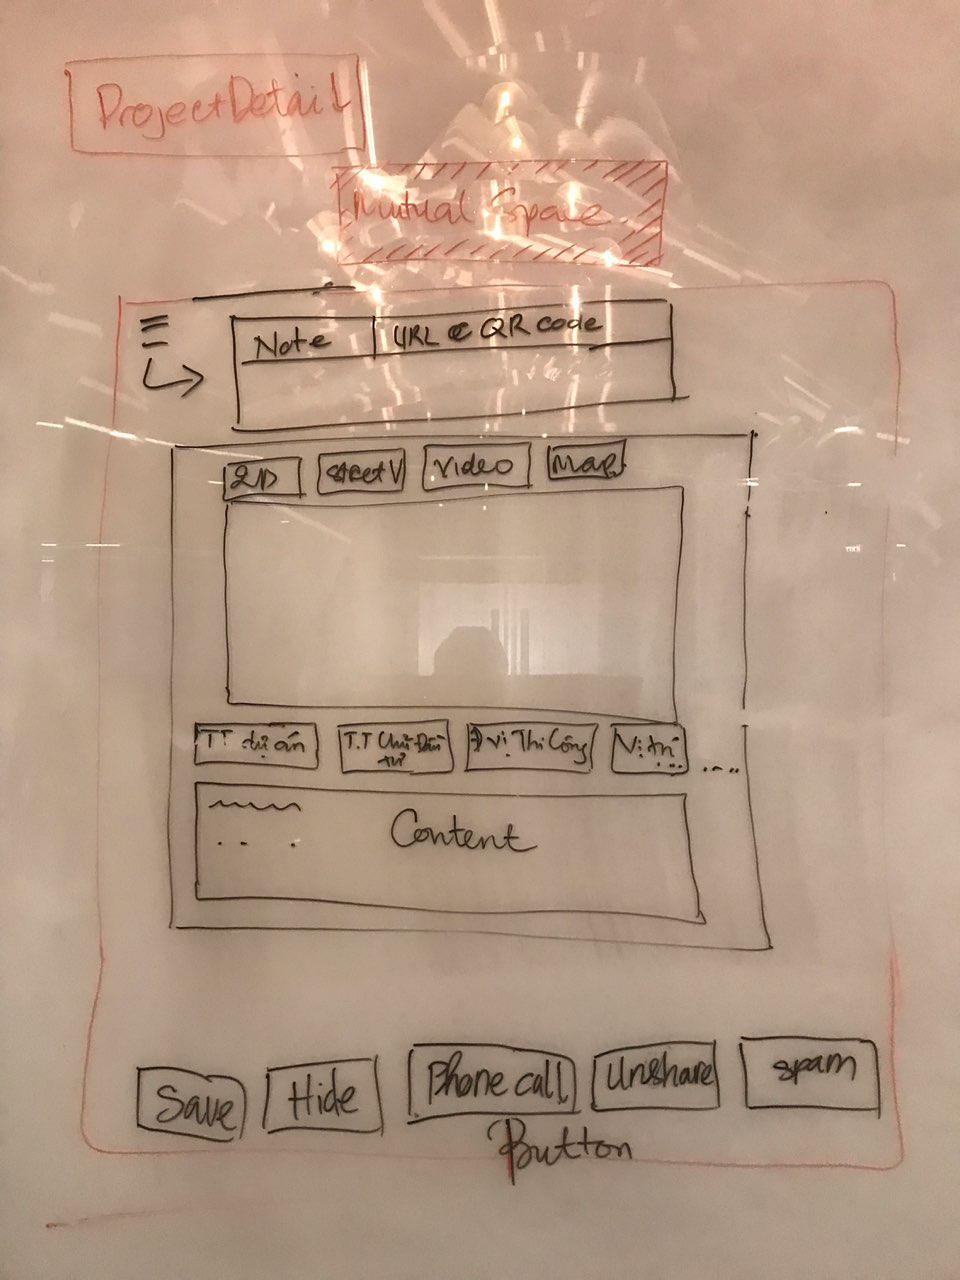 ProjectDetail
Mutual Space
Note
URL & QR code
2D
StreetV
Video
Map
TT dự án
T.T Chủ Đầu
tư
Đ Vị Thi Công
Vị trí
....
Content
Save
Hide
Phone call
Unshare
spam
Button